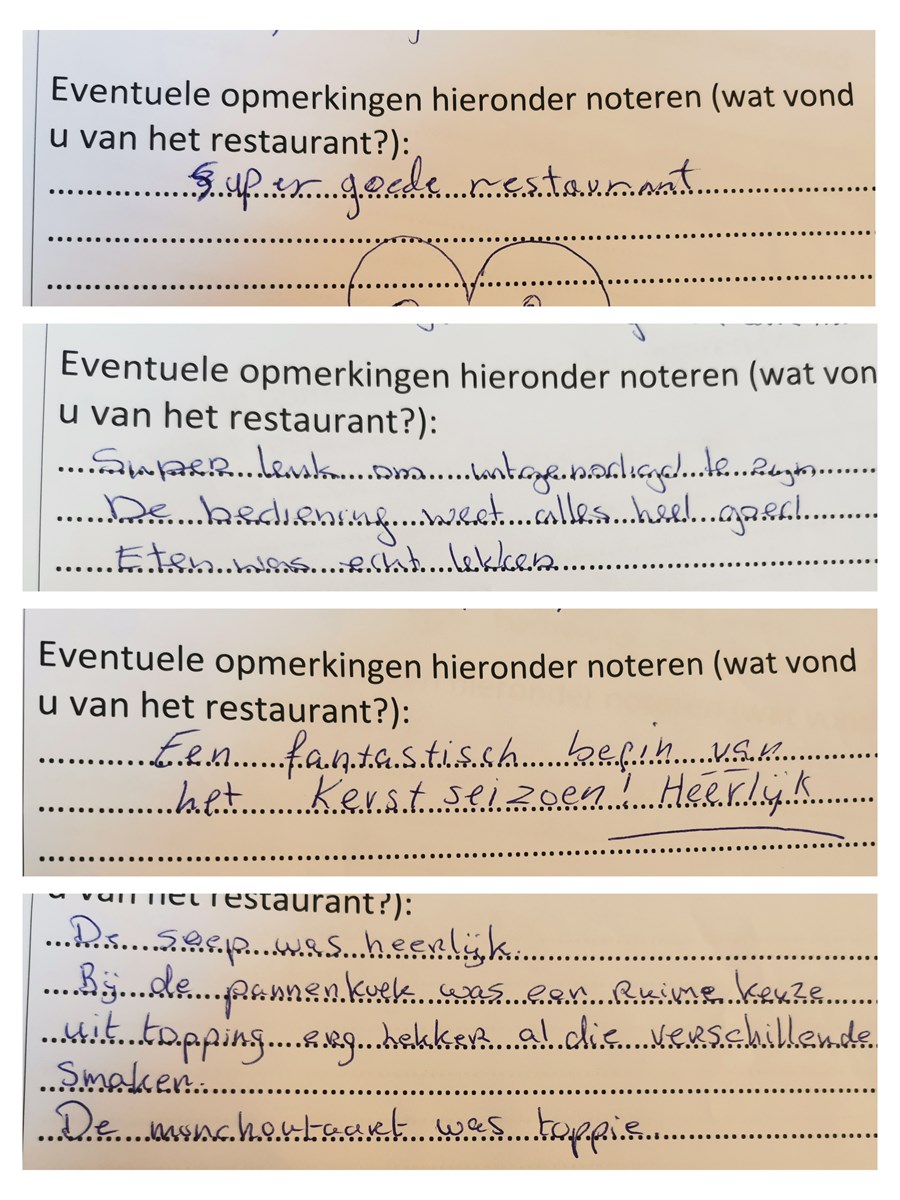 Eventuele opmerkingen hieronder noteren (wat vond
u van het restaurant?):
Super goede restaurant
Eventuele opmerkingen hieronder noteren (wat von
u van het restaurant?):
Super leuk om uitgenodigd te zijn
De bediening weet alles heel goed
Eten was echt lekker
Eventuele opmerkingen hieronder noteren (wat vond
u van het restaurant?):
Een fantastisch begin van
het Kerst seizoen! Heerlijk
u van het restaurant?):
De soep was heerlijk.
Bij de pannenkoek was een Ruime keuze
uit topping erg lekker al die verschillende
Smaken.
De monchoutaart was toppie.